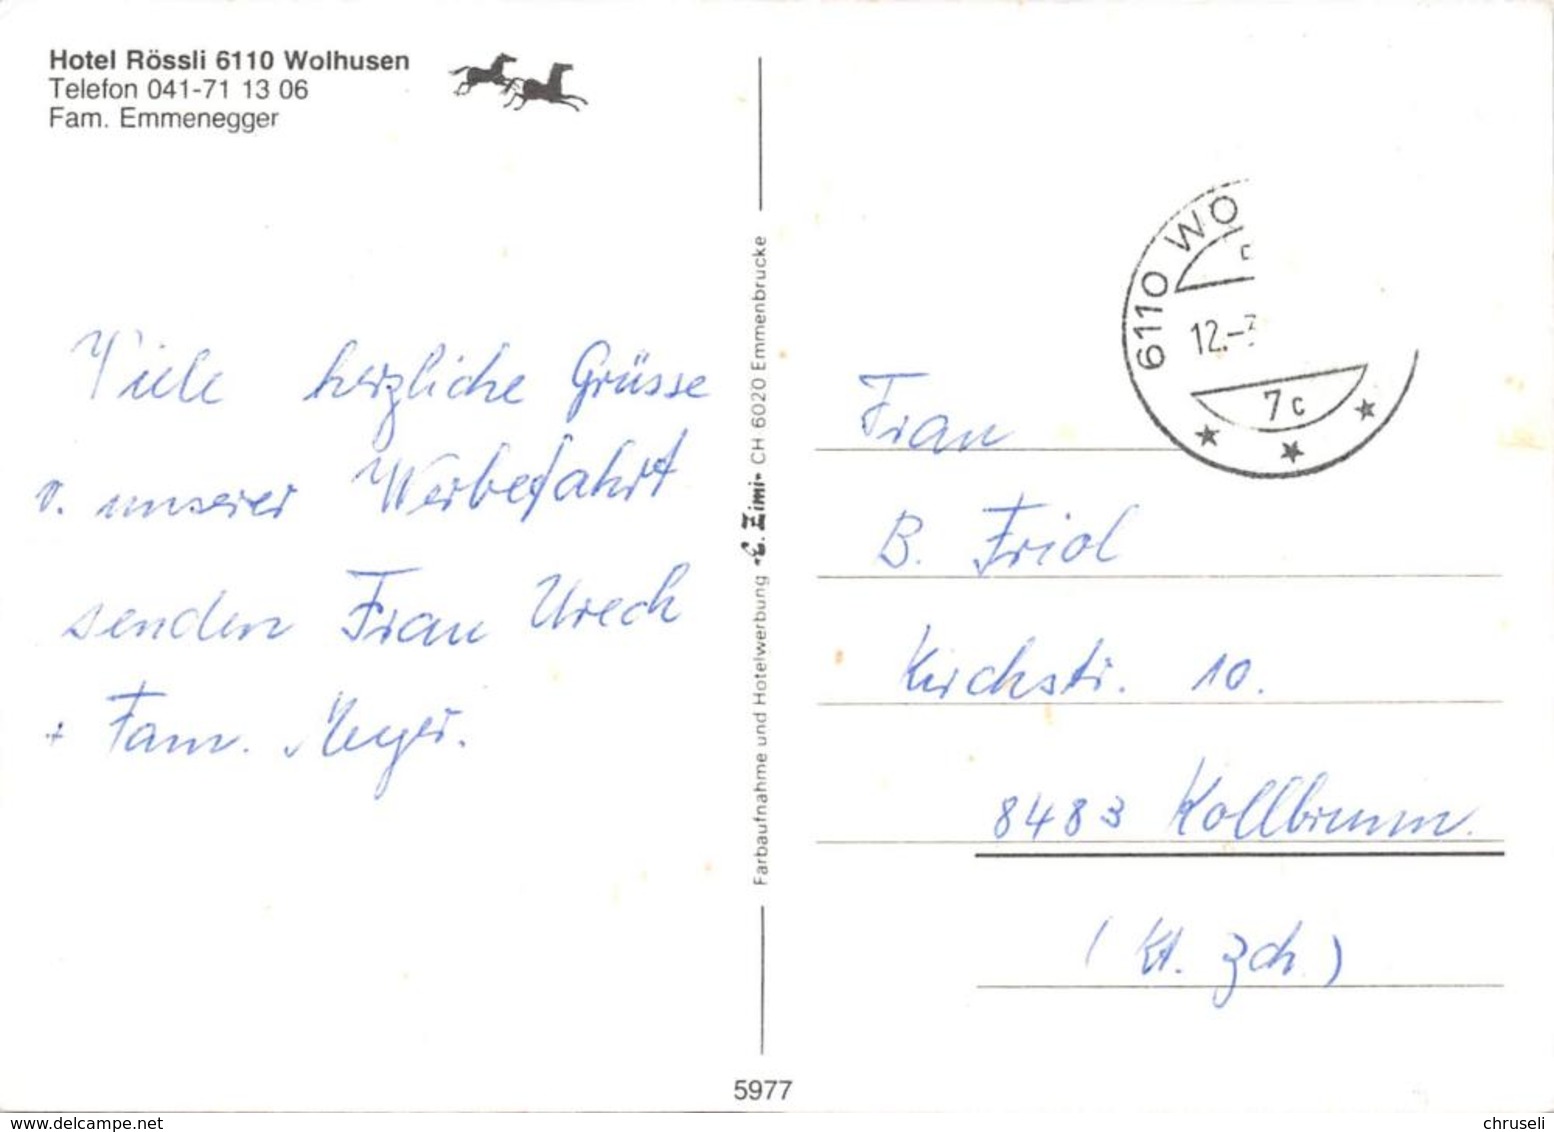 Hotel Rössli 6110 Wolhusen
Telefon 041-71 13 06
Fam. Emmenegger
Viele herzliche Grüsse
v. unserer Werbefahrt
senden Frau Urech
+ Fam. Meyer.
Farbaufnahme und Hotelwerbung "E. Zimi" CH 6020 Emmenbrücke
6110 WO
12.-3
7c
Frau
B. Friol
Kirchstr. 10.
8483 Kollbrunn.
(Kt. Zch.)
5977
www.delcampe.net
chruseli